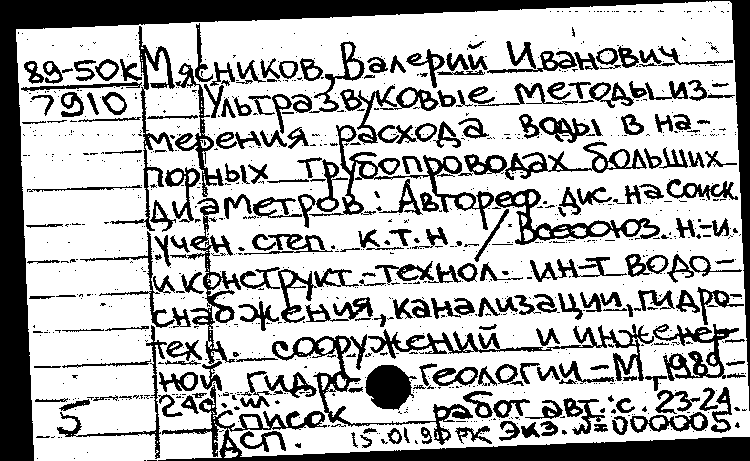 89-50к Мясников, Валерий Иванович
7910 Ультразвуковые методы из-
мерения расхода воды в на-
порных трубопроводах больших
диаметров: Автореф. дис. на соиск.
учен. степ. к.т.н. / Всесоюз. н.-и.
и конструкт.-технол. ин-т водо-
снабжения, канализации, гидро-
техн. сооружений и инженер-
ной гидро- геологии - М., 1989 -
24с.:ил.
5 Список работ авт.: с. 23-24.
ДСП. 15.01.90 РК Экз. №=000005.